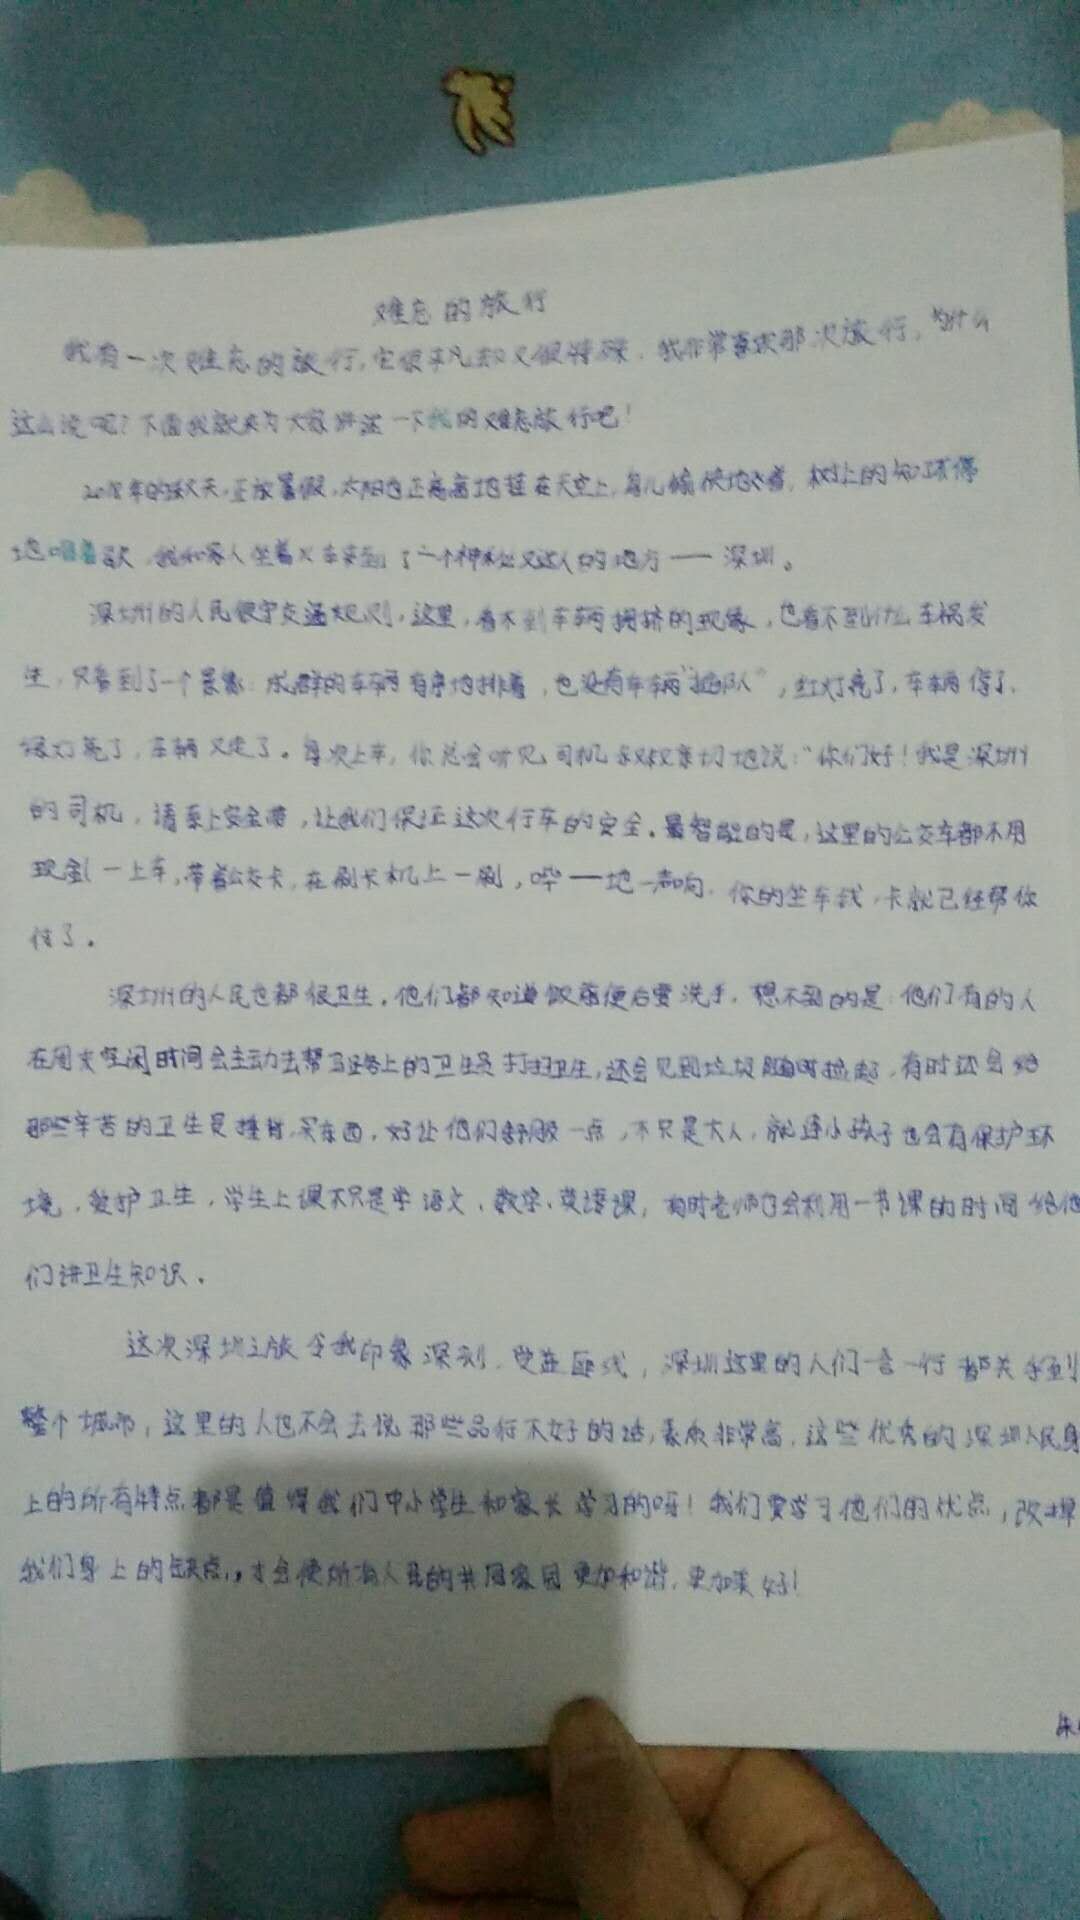 难忘的旅行
我有一次难忘的旅行,它很平凡却又很特殊,我非常喜欢那次旅行,为什么
这么说呢?下面我就来为大家讲述一下我的难忘旅行吧!
2018年的秋天,正放暑假,太阳也正高高地挂在天空上,鸟儿愉快地,树上的知了不停
地唱着歌,我和家人坐着火车来到了一个神秘又迷人的地方——深圳。
深圳的人民很守交通规则,这里,看不到车辆拥挤的现象,也看不到什么车祸发
生,只看到了一个景象:成群的车辆有序地排着,也没有车辆"插队",红灯亮了,车辆停了,
绿灯亮了,车辆又走了。每次上车,你总会听见司机叔叔亲切地说:"你们好!我是深圳
的司机,请系上安全带,让我们保证这次行车的安全。最智能的是,这里的公交车都不用
现金(一上车,带着公交卡,在刷卡机上一刷,哗——地一声响,你的坐车钱,卡就已经帮你
付了。
深圳的人民也都很卫生。他们都知道饭前便后要洗手。想不到的是:他们有的人
在周末空闲时间会主动去帮马路上的卫生员打扫卫生,还会见到垃圾随时捡起,有时还会给
那些辛苦的卫生员捶背,买东西,好让他们舒服一点,不只是大人,就连小孩子也会有保护环
境,爱护卫生,学生上课不只是学语文、数学、英语课,有时老师们会利用一节课的时间给他
们讲卫生知识。
这次深圳之旅令我印象深刻,受益匪浅,深圳这里的人们一言一行都关乎到
整个城市,这里的人也不会去说那些品行不好的话,素质非常高,这些优秀的深圳人民身
上的所有特点都是值得我们中小学生和家长学习的呀!我们要学习他们的优点,改掉
我们身上的缺点,,才会使所有人民的共同家园更加和谐,更加美好!
朱